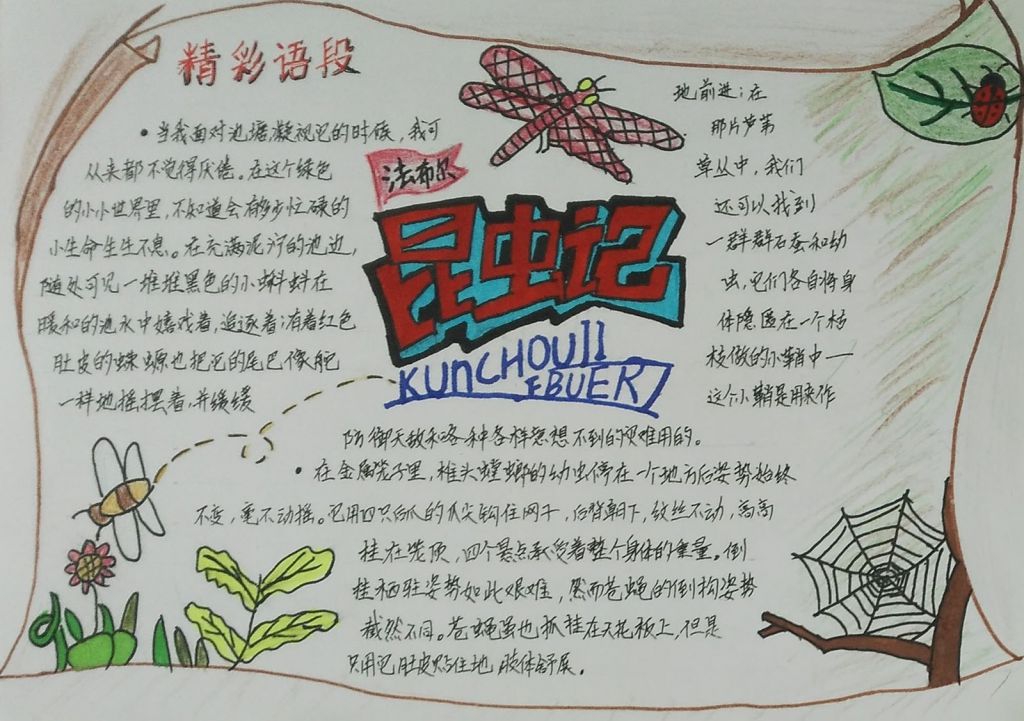 精彩语段
• 当我面对池塘,凝视它的时候,我可
从来都不觉得厌倦。在这个绿色
的小小世界里,不知道会有多少忙碌的
小生命生生不息。在充满泥泞的池边,
随处可见一堆堆黑色的小蝌蚪在
暖和的池水中嬉戏着,追逐着;有着红色
肚皮的蝾螈也把它的尾巴像舵
一样地摇摆着,并缓缓
地前进;在
那片芦苇
草丛中,我们
还可以找到
一群群石蚕和幼
虫,它们各自将身
体隐匿在一个枯
枝做的小鞘中—
这个小鞘是用来作
防御天敌和各种各样意想不到的灾难用的。
法布尔
昆虫记
KUnCHOUJI
FBUER
• 在金属笼子里,椎头螳螂的幼虫停在一个地方后姿势始终
不变,毫不动摇。它用四只后爪的爪尖钩住网干,后背朝下,纹丝不动,高高
挂在笼顶,四个悬点承受着整个身体的重量。倒
挂栖驻姿势如此艰难,然而苍蝇的倒构姿势
截然不同。苍蝇虽也抓挂在天花板上,但是
只用它肚皮贴住地 肢体舒展。